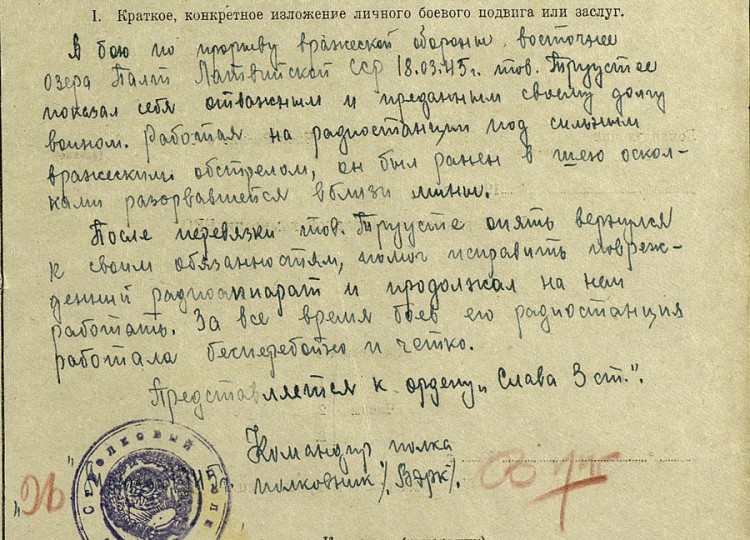 I. Краткое, конкретное изложение личного боевого подвига или заслуг.
В бою по прорыву вражеской обороны восточнее
озера Палт Латвийской ССР 18.03.45г. тов. Труустее
показал себя отважным и преданным своему долгу
воином. Работая на радиостанции под сильным
вражеским обстрелом, он был ранен в шею оскол-
ками разорвавшейся вблизи мины.
После перевязки тов. Труусте опять вернулся
к своим обязанностям, помог исправить повреж-
денный радиоаппарат и продолжал на нем
работать. За все время боев его радиостанция
работала бесперебойно и четко.
Представляется к ордену „Слава 3 ст.".
Командир полка
полковник
СТРЕЛКОВЫЙ